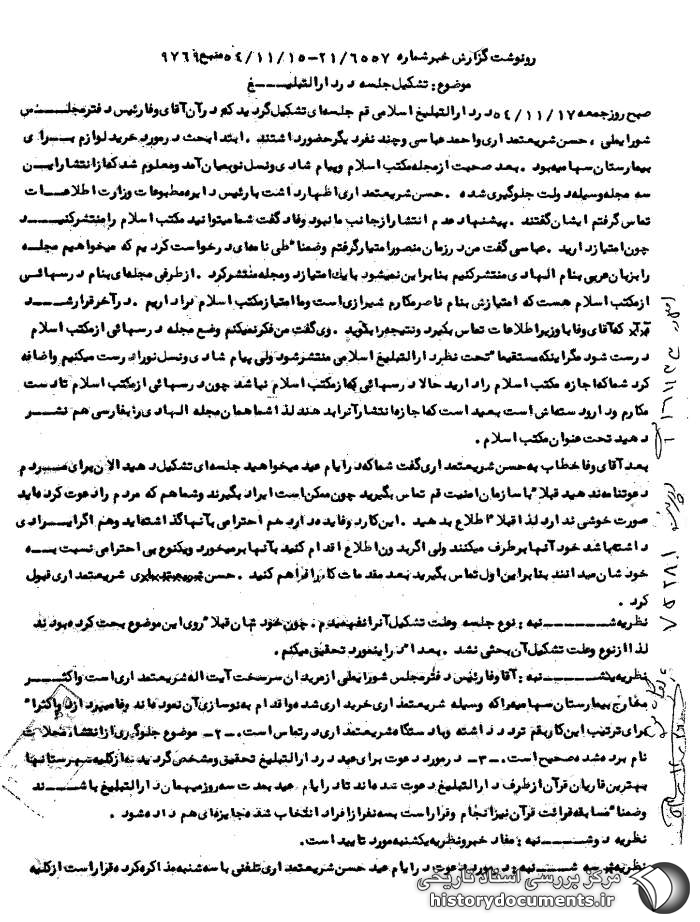 رونوشت گزارش خبر شماره ۲۱/۶۵۵۷-۵۴/۱۱/۱۵ منبع ۹۷۶۹
موضوع : تشکیل جلسه در دارالتبلیـــــغ
صبح روز جمعه ۵۴/۱۱/۱۷ در دارالتبلیغ اسلامی قم جلسه ای تشکیل گردید که در آن آقای وفا رئیس دفتر مجلــــس
شورایملی ، حسن شریعتمداری و احمد عباسی و چند نفر دیگر حضور داشتند . ابتدا بحث در مورد خرید لوازم بـــرای
بیمارستان سهامیه بود . بعد صحبت از مجله مکتب اسلام و پیام شادی و نسل نو بمیان آمد و معلوم شد که از انتشار ایـــن
سه مجله وسیله دولت جلوگیری شده . حسن شریعتمداری اظهار داشت با رئیس دایره مطبوعات وزارت اطلاعـــات
تماس گرفتم ایشان گفتند . پیشنهاد عدم انتشار از جانب ما نبود وفا گفت شما میتوانید مکتب اسلام را منتشر کنیـــد
چون امتیاز دارید . عباسی گفت من در زمان منصور امتیاز گرفتم وضمنا" طی نامه ای درخواست کردیم که میخواهیم مجلـــه
را بزبان عربی بنام الهادی منتشر کنیم بنابراین نمیشود با یک امتیاز دو مجله منتشر کرد . از طرفی مجله ای بنام درسهائـی
از مکتب اسلام هست که امتیازش بنام ناصر مکارم شیرازی است و ما امتیاز مکتب اسلام را داریم . در آخر قرار شـــد
که آقای وفا با وزیر اطلاعات تماس بگیرد و نتیجه را بگوید . وی گفت من فکر نمیکنم وضع مجله درسهائی از مکتب اسلام
درست شود مگر اینکه مستقیما" تحت نظر دارالتبلیغ اسلامی منتشر شود ولی پیام شادی و نسل نو را درست میکنیم و اضافه
کرد شما که اجازه مکتب اسلام را دارید حالا درسهائی از مکتب اسلام نباشد چون درسهائی از مکتب اسلام تا دست
مکارم و دارودسته اش است بعید است که اجازه انتشار آنرا بدهند لذا شما همان مجله الهادی را بفارسی هم نشـــر
دهید تحت عنوان مکتب اسلام .
بعد آقای وفا خطاب به حسن شریعتمداری گفت شما که در ایام عید میخواهید جلسه ای تشکیل دهید الان برای مـــردم
دعوتنامه ندهید قبلا" با سازمان امنیت قم تماس بگیرید چون ممکن است ایراد بگیرند و شما هم که مردم را دعوت کرده اید
صورت خوشی ندارد لذا قبلا" اطلاع بدهید . این کار دو فایده دارد هم احترامی بآنها گذاشته اید و هم اگر ایـــرادی
داشته باشد خود آنها برطرف میکنند ولی اگر بدون اطلاع اقدام کنید بآنها بر میخورد و یکنوع بی احترامی نسبت بـــه
خودشان میدانند بنابراین اول تماس بگیرید بعد مقدمات کار را فراهم کنید . حسن شریعتمداری قبول
کرد .
نظریه شـــــنبه : نوع جلسه و علت تشکیل آنرا نفهمیدم ، چون خودشان قبلا" روی این موضوع بحث کرده بودند
لذا از نوع و علت تشکیل آن بحثی نشد . بعدا" در اینمورد تحقیق میکنم .
نظریه یکشـــــنبه : آقا وفا رئیس دفتر مجلس شورایملی از مریدان سرسخت آیت اله شریعتمداری است و اکثـــر
مخارج بیمارستان سهامیه را که وسیله شریعتمداری خریداری شده و اقدام به نوسازی آن نموده اند وفا میپردازد و اکثرا"
برای ترتیب این کار بقم تردد داشته و با دستگاه شریعتمداری در تماس است . -۲- موضوع جلوگیری از انتشار مجلات
نام برده شده صحیح است . -۳- در مورد دعوت برای عید در دارالتبلیغ تحقیق و مشخص گردید که از کلیه شهرستانها
بهترین قاریان قرآن از طرف دارالتبلیغ دعوت شده اند تا در ایام عید بمدت سه روز میهمان دارالتبلیغ باشـــند
وضمنا" مسابقه قرائت قرآن نیز انجام و قرار است بسه نفر از افراد انتخاب شده جایزه ای هم داده شود .
نظریه دوشـــــنبه : مفاد خبر و نظریه یکشنبه مورد تایید است .
نظریه سه شـــــنبه : در مورد دعوت در ایام عید حسن شریعتمداری تلفنی با سه شنبه مذاکره کرده قرار است از کلیه
مرکز بررسی اسناد تاریخی
historydocuments.ir